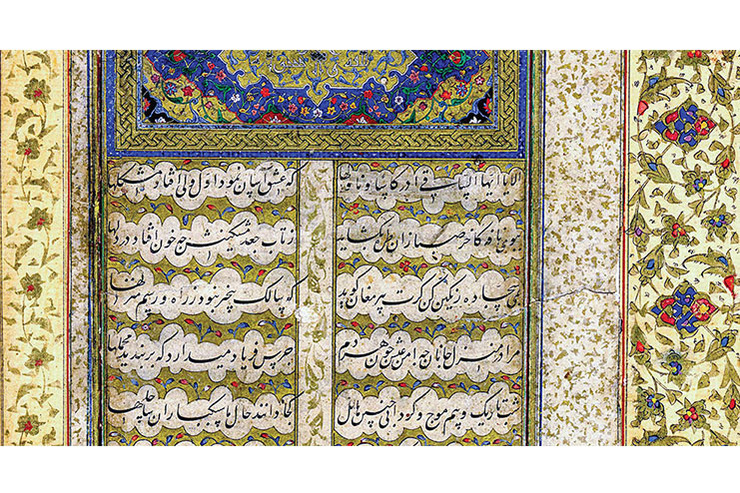 الا یا ایها الساقی ادر کاسا وناولها
که عشق آسان نمود اول ولی افتاد مشکلها
ببوی نافه کاخر صبا زان طره بگشاید
ز تاب جعد مشکینش چه خون افتاد در دلها
بمی سجاده رنگین کن گرت پیر مغان گوید
که سالک بیخبر نبود ز راه و رسم منزلها
مرا در منزل جانان چه امن عیش چون هر دم
جرس فریاد میدارد که بربندید محملها
شب تاریک و بیم موج و گردابی چنین هایل
کجا دانند حال ما سبکباران ساحلها